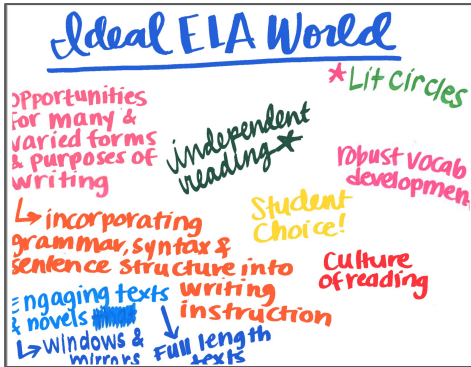 Ideal ELA World
*Lit circles
opportunities
for many &
varied forms
& purposes of
writing
independent
reading*
robust vocab
development
Student
Choice!
↳ incorporating
grammar, syntax &
sentence structure into
writing
instruction
Culture
of reading
Engaging texts
& novels
↳ windows &
mirrors
↓ Full length
texts